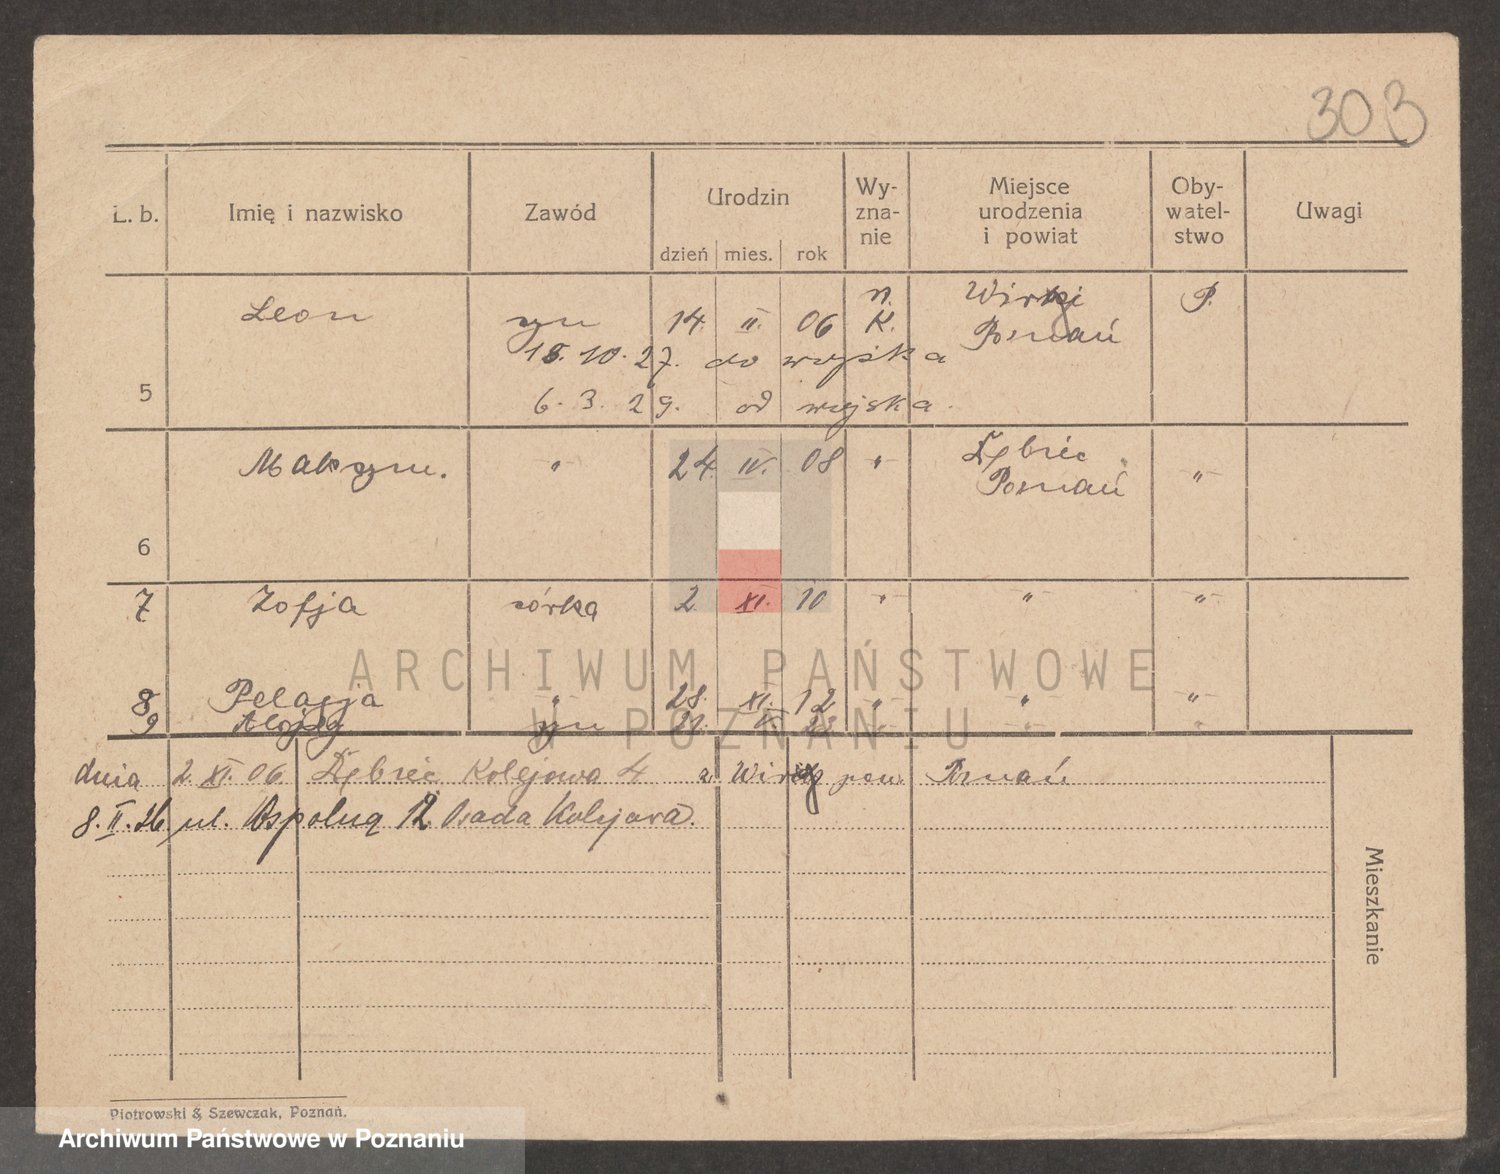 303
L. b. Imię i nazwisko Zawód Urodzin Wy-zna-nie Miejsce urodzenia i powiat Oby-watel-stwo Uwagi
dzień mies. rok
n.
Leon syn 14. II. 06 K. Wirzi P.
Poznań
18. 10. 27. do wojska
5
6. 3. 29. od wojska.
Maksym. " 24. IV. 08 " Dębiec "
Poznań
6
7 Zofja córka 2. XI. 10 " " "
ARCHIWUM PAŃSTWOWE
8 Pelagja " 28. XI. 12 " " "
9 Alojzy syn
W POZNANIU
dnia 2. XI. 06 Dębiec Kolejowa 4 z pow. Poznań
8. II. 26 ul. 12 Osada Kolejowa.
Mieszkanie
Piotrowski & Szewczak, Poznań.
Archiwum Państwowe w Poznaniu